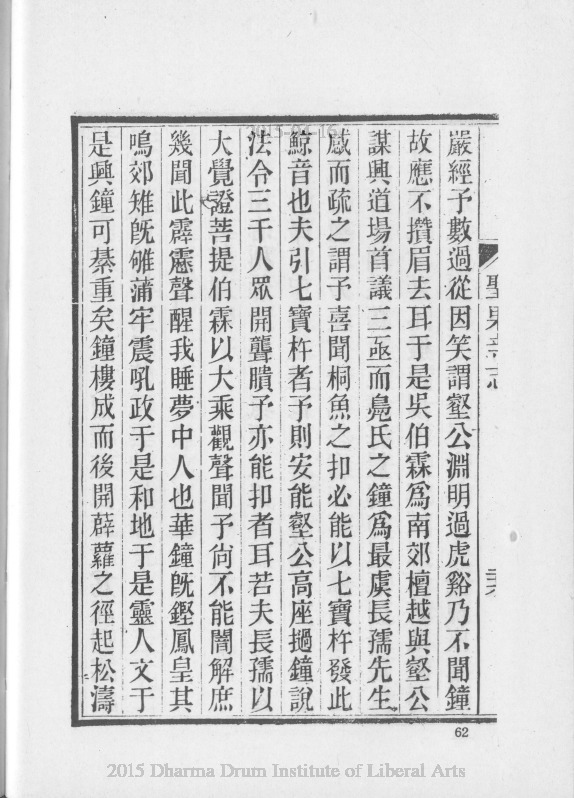 嚴經予數過從因笑謂壑公淵明過虎谿乃不聞鐘
故應不攢眉去耳于是吳伯霖為南郊檀越與壑公
謀興道場首議三亟而鳧氏之鐘為最虞長孺先生
感而疏之謂予喜聞桐魚之扣必能以七寶杵發此
鯨音也夫引七寶杵者予則安能壑公高座撾鐘說
法令三千人眾開聾瞶予亦能扣者耳若夫長孺以
大覺證菩提伯霖以大乘觀聲聞予尙不能闇解庶
幾聞此霹靂聲醒我睡夢中人也華鐘旣鏗鳳皇其
鳴郊雉旣雊蒲牢震吼政于是和地于是靈人文于
是興鐘可綦重矣鐘樓成而後開薜蘿之徑起松濤
聖果寺志
62
2015 Dharma Drum Institute of Liberal Arts